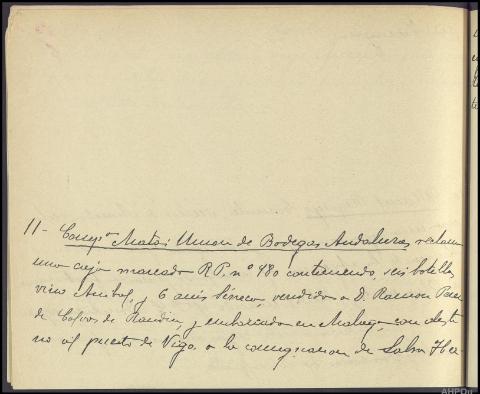 11- Compª Mata: Union de Bodegas Andaluzas, reclam
una caja marcada R.P. nº 980 conteniendo, seis botellas
vino y 6 anis vendido a D. Ramon
de Calvos de Randin, y embarcada en Malaga, con desti
no al puerto de Vigo, a la consignacion de Her-
AHPOu